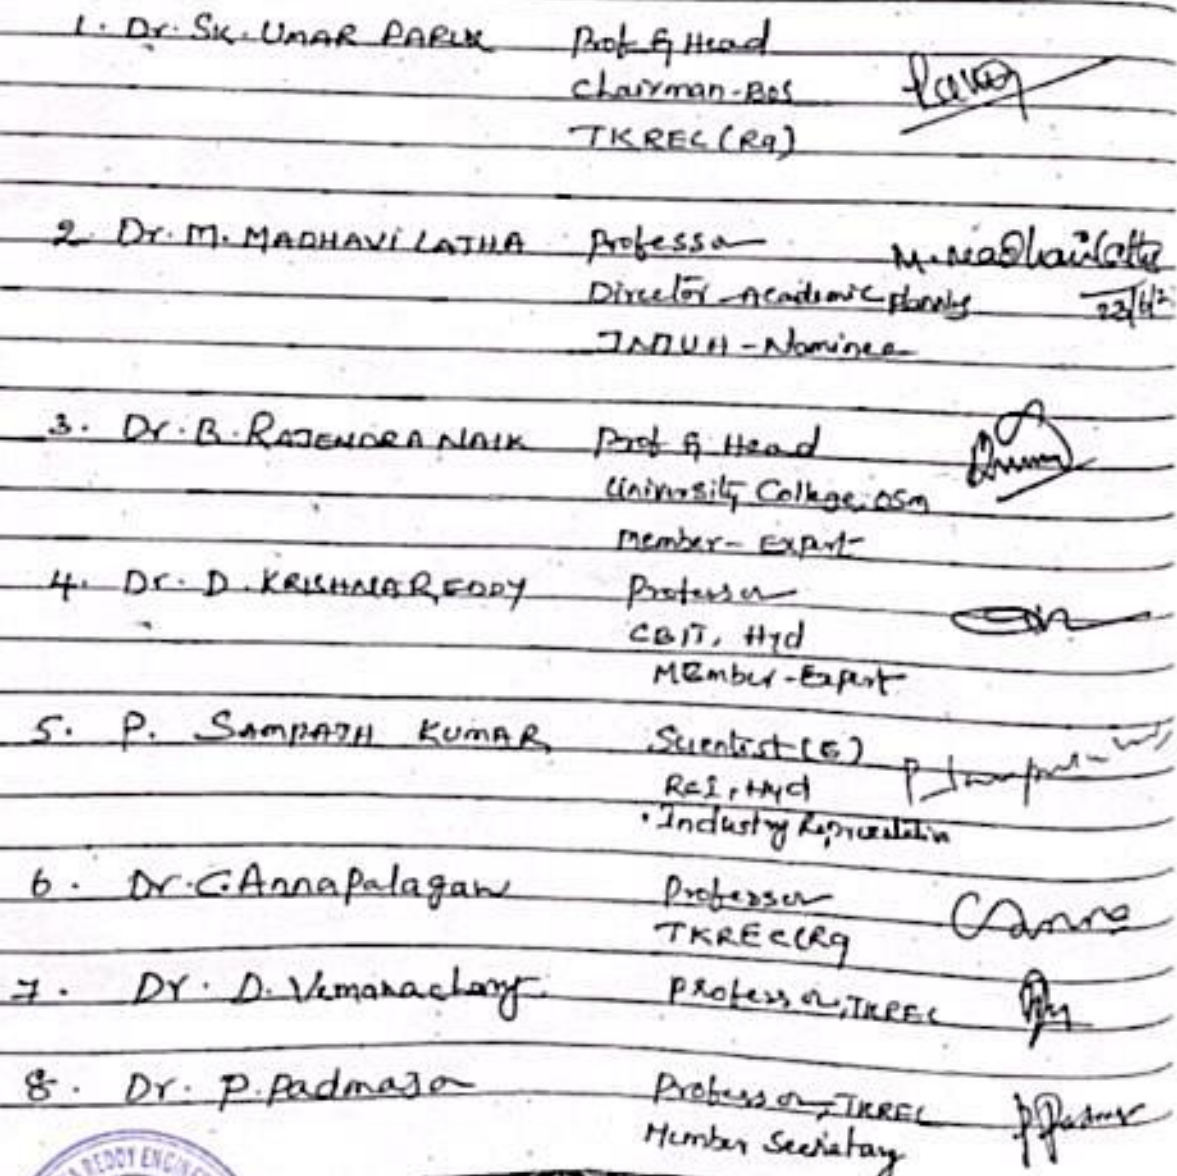 1. Dr. SK. UMAR PARUK Prof & Head
Chairman-BOS
TKREC (R9)
2. Dr. M. MADHAVI LATHA Professor M. Madhavi Latha
Director Academic Planning 22/6/2
JNTUH - Nominee
3. Dr. B. RAJENDRA NAIK Prof & Head
University College, OSM
Member - Expert
4. Dr. D. KRISHNA REDDY Professor
CBIT, Hyd
MEmber - Expert
5. P. SAMPATH KUMAR Scientist (E)
RCI, Hyd
Industry Representative
6. Dr. C. Annapalagan Professor
TKREC(R9
7. Dr. D. Vemanachary Professor, TKREC
8. Dr. P. Padmaja Professor, TKREC
Member Secretary
REDDY ENGINE